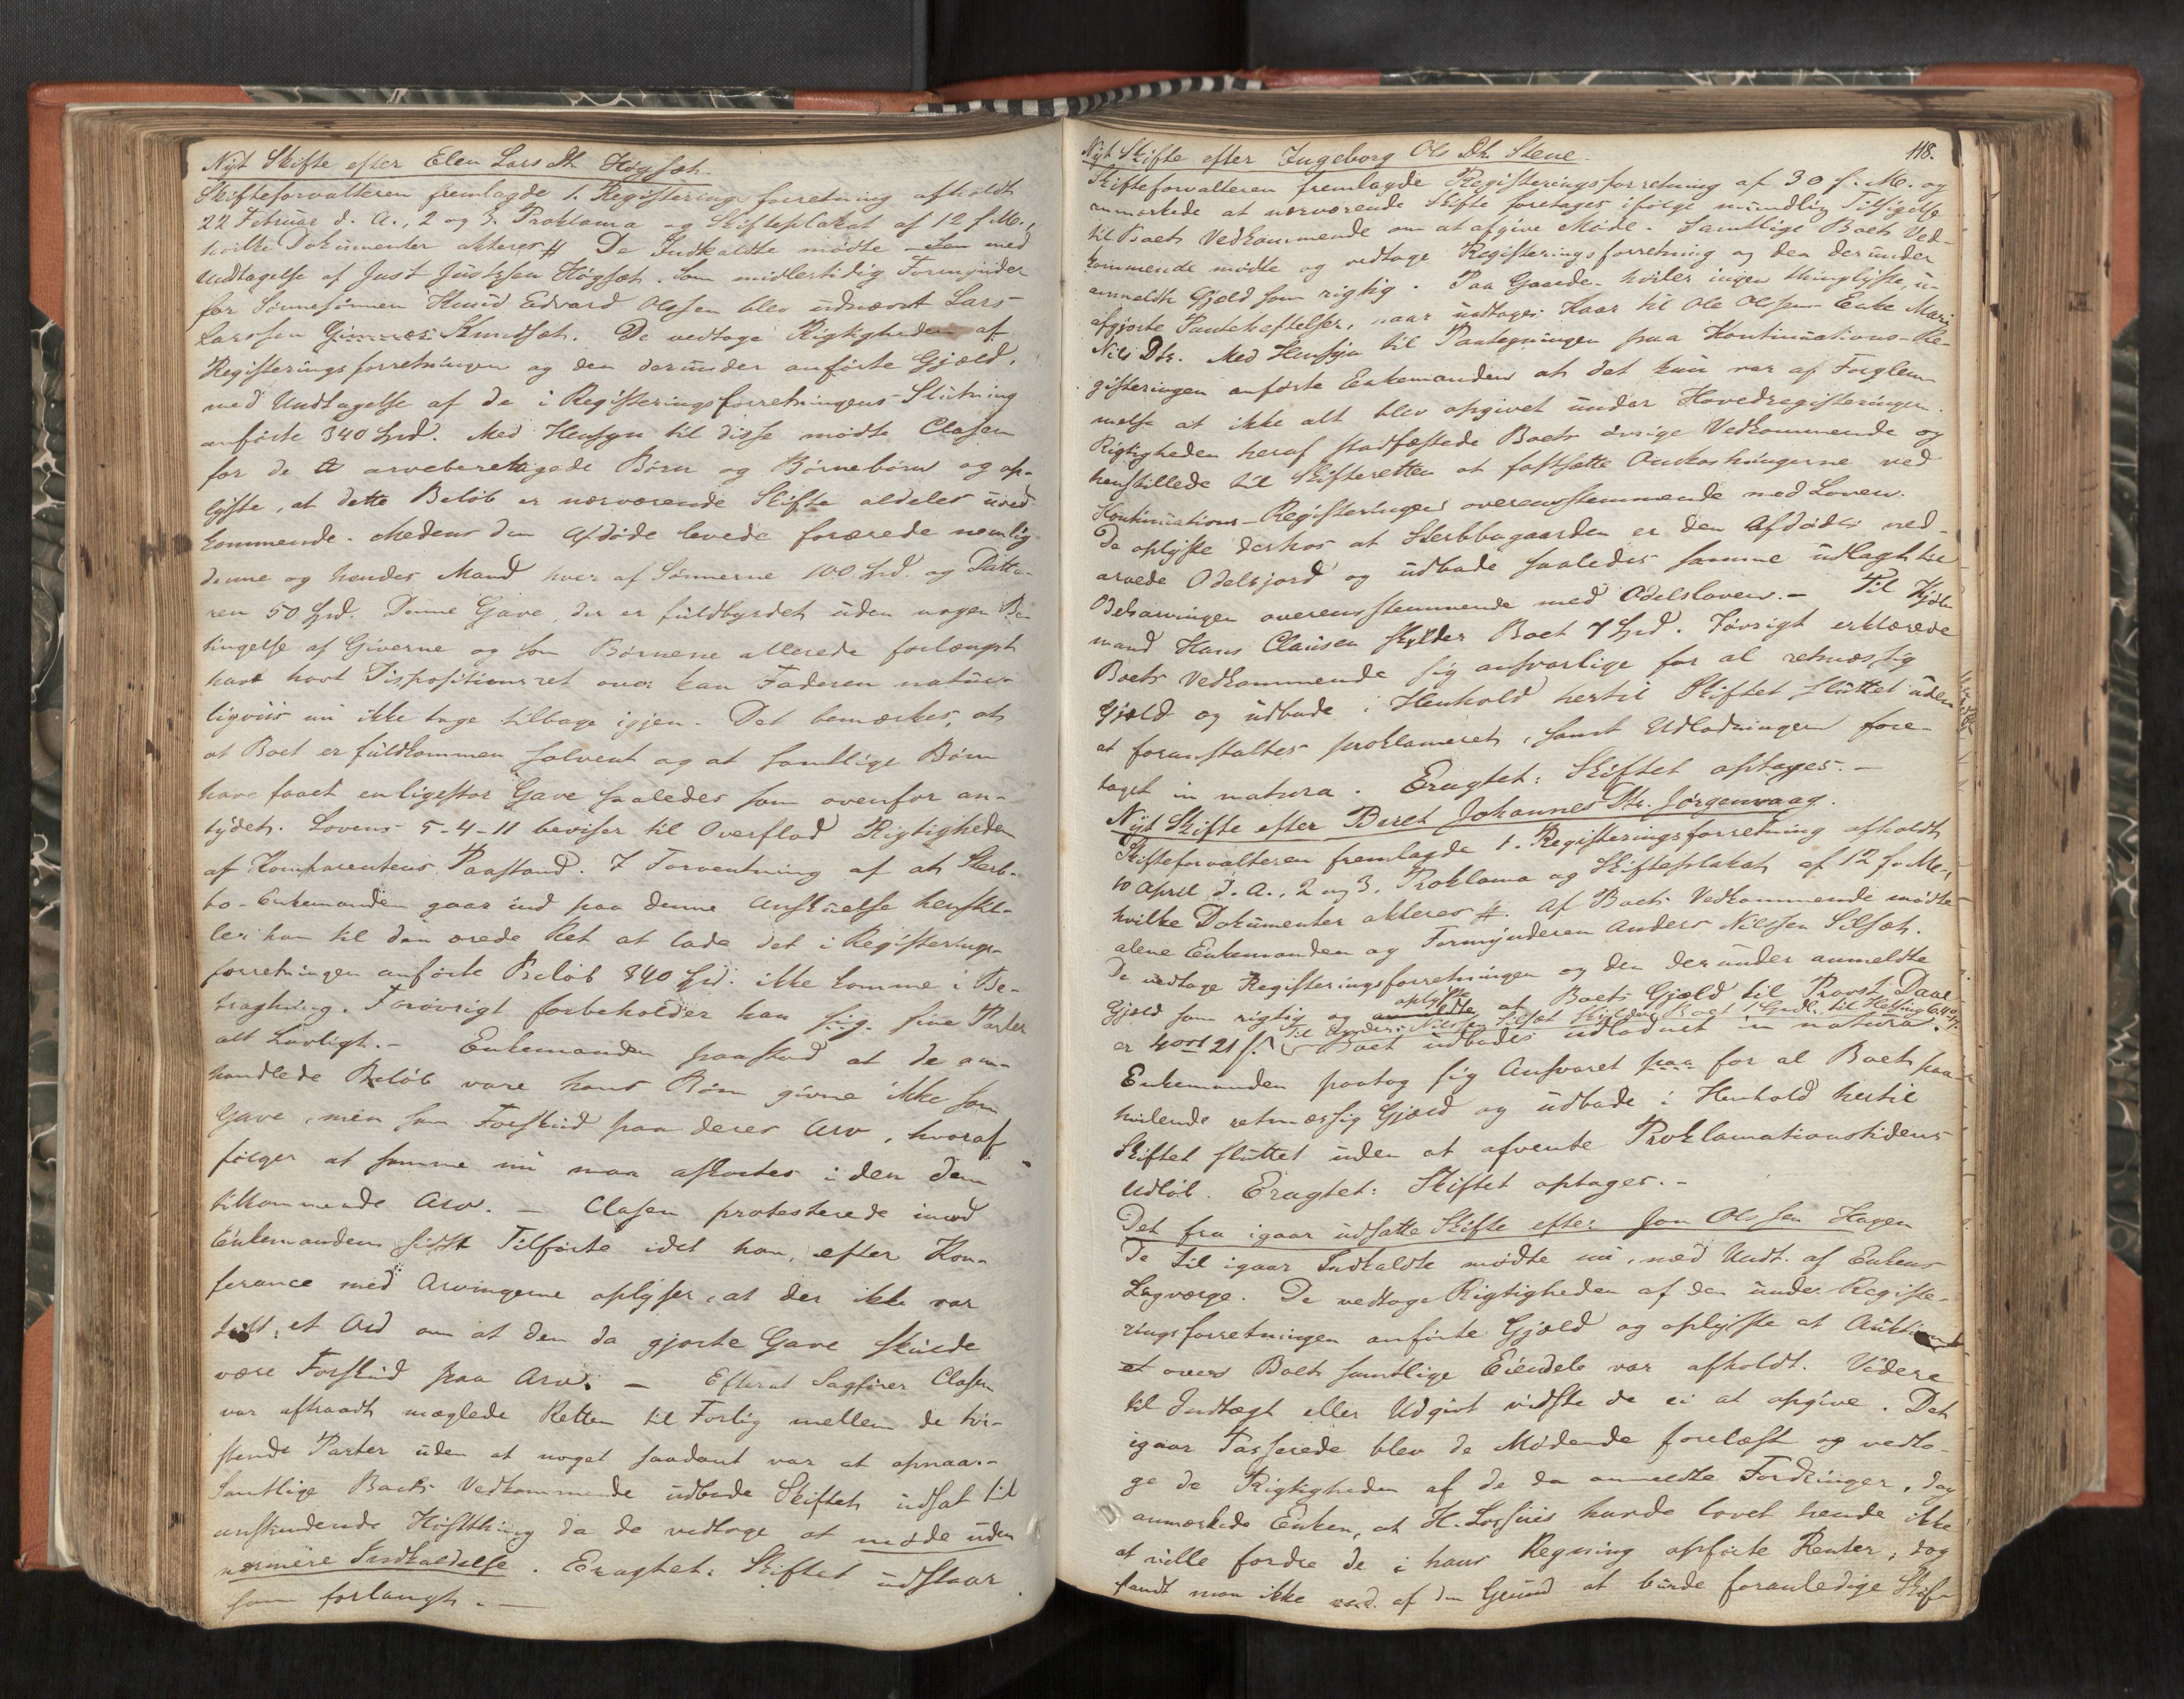 Nyt Skifte efter Elen Lars Dtr. Høgsæt.
Skifteforvalteren fremlagde 1. Registerings forretning afholdt
22 Februar d. A., 2 og 3. Proklama og Skifteplakat af 12 f. M.,
hvilke Dokumenter akteres # De Indkaldte mødte – med
Undtagelse af Just Justsen Høgsæt. Som midlertidig Formynder
for Sønnesønnen Knud Edvard Olssen blev udnævnt Lars
Larssen Knudsæt. De vedtoge Rigtigheden af
Registeringsforretningen og den derunder anførte Gjæld,
med Undtagelse af de i Registeringsforretningens Slutning
anførte 340 Spd. Med Hensyn til disse mødte Clasen
for de arveberettigede Børn og Børnebørn og op-
lyste, at dette Beløb er nærværende Skifte aldeles uved-
kommende. Medens den Afdøde levede forærede nemlig
denne og hendes Mand hver af Sønnerne 100 Spd. og Datte-
ren 50 Spd. Denne Gave, der er fuldbyrdet uden nogen Be-
tingelse af Giverne og som Børnene allerede forlængst
have havt Dispositionsret over kan Faderen natur-
ligviis nu ikke tage tilbage igjen. Det bemærkes, at
at Boet er fuldkommen solvent og at samtlige Børn
have faaet en ligestor Gave saaledes som ovenfor an-
tydet. Lovens 5-4-11 beviser til Overflod Rigtigheden
af Komparentens Paastand. I Forventning af at Sterb-
bo-Enkemanden gaar ind paa denne Anskuelse henstil-
ler han til den ærede Ret at lade det i Registerings-
forretningen anførte Beløb 340 Spd. ikke komme i Be-
tragtning. Forøvrigt forbeholder han sig. sine Parter
alt Lovligt. – Enkemanden paastod at de om-
handlede Beløb vare hans Børn givne ikke som
Gave, men som Forskud paa deres Arv, hvoraf
følger at samme nu maa afkortes i den dem
tilkommende Arv. – Clasen protesterede imod
Enkemandens sidste Tilførte idet han, efter Kon-
ferance med Arvingerne oplyser, at der ikke var
talt et Ord om at den da gjorte Gave skulde
være Forskud paa Arv. – Efterat Sagfører Clasen
var aftraadt mæglede Retten til Forlig mellem de tvi-
stende Parter uden at noget saadant var at opnaae.–
Samtlige Boets Vedkommende udbade Skiftet udsat til
anstundende Høstthing da de vedtoge at møde uden
nærmere Indkaldelse. Eragtet: Skiftet udstaar
som forlangt. –
118.
Nyt Skifte efter Ingeborg Ols Dtr. Stene.
Skifteforvalteren fremlagde Registeringsforretning af 30 f. M. og
anmærkede at nærværende Skifte foretages ifølge mundtlig Tilsigelse
til Boets Vedkommende om at afgive Møde. Samtlige Boets Ved-
kommende mødte og vedtoge Registeringsforretning og den derunder
anmeldte Gjæld som rigtig. Paa Gaarden hviler ingen thinglyste, u-
afgjorte Pantehæftelser, naar undtages Kaar til Ole Olsens Enke Mari
Nils Dtr. Med Hensyn til Paategningen paa Kontinuations-Re-
gisteringen anførte Enkemanden at det kun var af Forglem-
melse at ikke alt blev opgivet under Hovedregisteringen.
Rigtigheden heraf stadfæstede Boets øvrige Vedkommende og
henstillede til Skifteretten at fastsætte Omkostningerne ved
Kontinuations-Registeringen overensstemmende med Loven.
De oplyste derhos at Sterbbogaarden er den Afdødes ned-
arvede Odelsjord og udbade saaledes samme udlagt til
Odelsarvingen overensstemmende med Odelsloven. – Til Kjøb-
mand Hans Clausen skylder Boet 7 Spd. Iøvrigt erklærede
Boets Vedkommende sig ansvarlige for al retmæssig
Gjæld og udbade i Henhold hertil Skiftet sluttet uden
at foranstaltes proklameret, samt Udlodningen fore-
taget in natura. Eragtet: Skiftet optages. –
Nyt Skifte efter Beret Johannes Dtr. Jørgenvaag.
Skifteforvalteren fremlagde 1. Registeringsforretning afholdt
10 April d. A., 2 og 3. Proklama og Skifteplakat af 12 f. M.,
hvilke Dokumenter akteres #. Af Boets Vedkommende mødte
alene Enkemanden og Formynderen Anders Nilssen Silsæt.
De vedtoge Registeringsforretningen og den derunder anmeldte
Gjæld som rigtig og oplyste at Boets Gjæld til Provst Daae
er 4 ort 21 s. Til Anders Nilssen Silsæt skylder Boet Boet udbades udloddet in natura.
Enkemanden paatog sig Ansvaret for al Boets paa-
hvilende retmæssig Gjæld og udbade i Henhold hertil
Skiftet sluttet uden at afvente Proklamationstidens
Udløb. Eragtet: Skiftet optages. –
Det fra igaar udsatte Skifte efter Jon Olssen Hagen
De til igaar Indkaldte mødte nu, med Undt. af Enkens
Lagværge. De vedtoge Rigtigheden af den under Registe-
ringsforretningen anførte Gjæld og oplyste at Auktion
over Boets samtlige Eiendele var afholdt. Videre
til Indtægt eller Udgivt vidste de ei at opgive. Det
igaar Passerede blev de Mødende forelæst og vedto-
ge de Rigtigheden af de da anmeldte Fordringer, dog
anmærkede Enken, at H. Lossius havde lovet hende ikke
at ville fordre de i hans Regning opførte Renter, dog
fandt man ikke af den Grund at burde foranledige Skif-